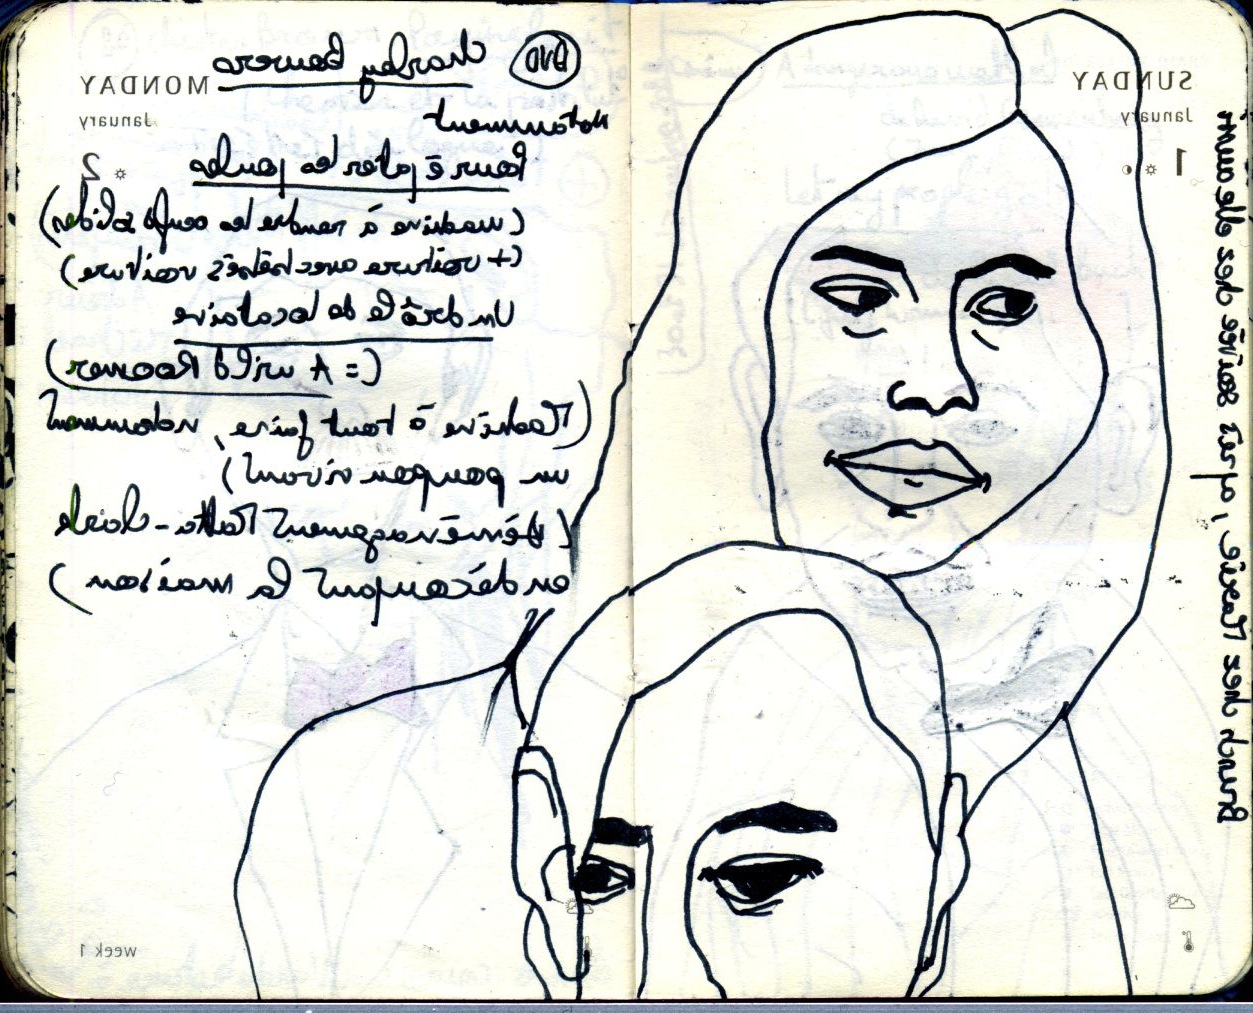 DVD Charley Bowers
MONDAY
January
2
Notamment
Pour épater les poules
(machine à rendre les oeufs solides)
(+ voiture avec bébés voiture)
Un drôle de locataire
(= A Wild Roomer)
(Machine à tout faire, notamment
un poupon vivant)
(Déménagement Matta-Clark
en découpant la maison)
week 1
SUNDAY
January
1
Brunch chez Maxime, après soirée chez